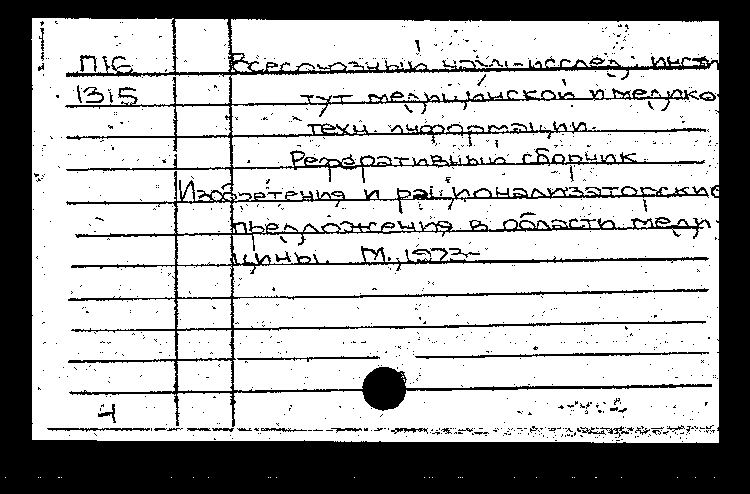 П16 Всесоюзный научн-исслед. инсти
1315 тут медицинской и медико-
техн. информации.
Реферативный сборник
Изобретения и рационализаторские
предложения в области меди-
цины. М., 1973-
4